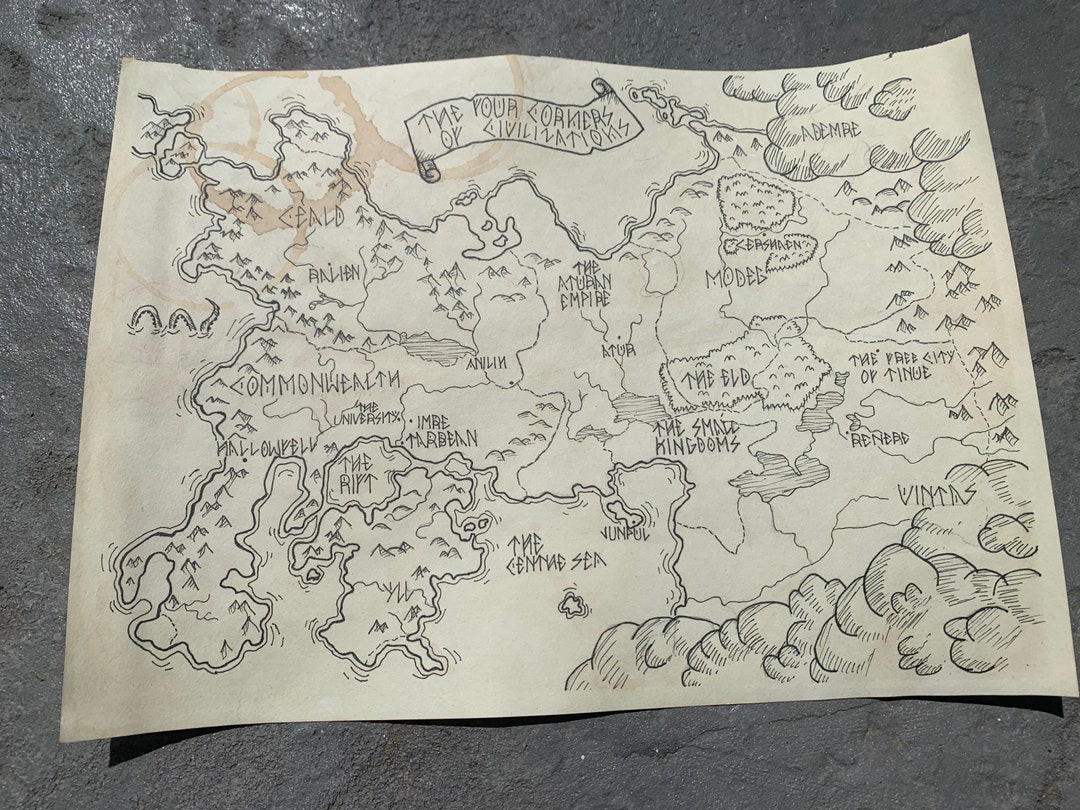 THE FOUR CORNERS
OF CIVILIZATIONS
ADEMRE
CEALD
RALIEN
THE
ATURAN
EMPIRE
CERSHAEN
MODEG
ATUR
ANILIN
THE ELD
THE FREE CITY
OF TINUE
COMMONWEALTH
THE
UNIVERSITY
IMRE
TARBEAN
THE SMALL
KINGDOMS
RENERE
HALLOWFELL
THE
RIFT
VINTAS
JUNPUI
THE
CENTHE SEA
YLL